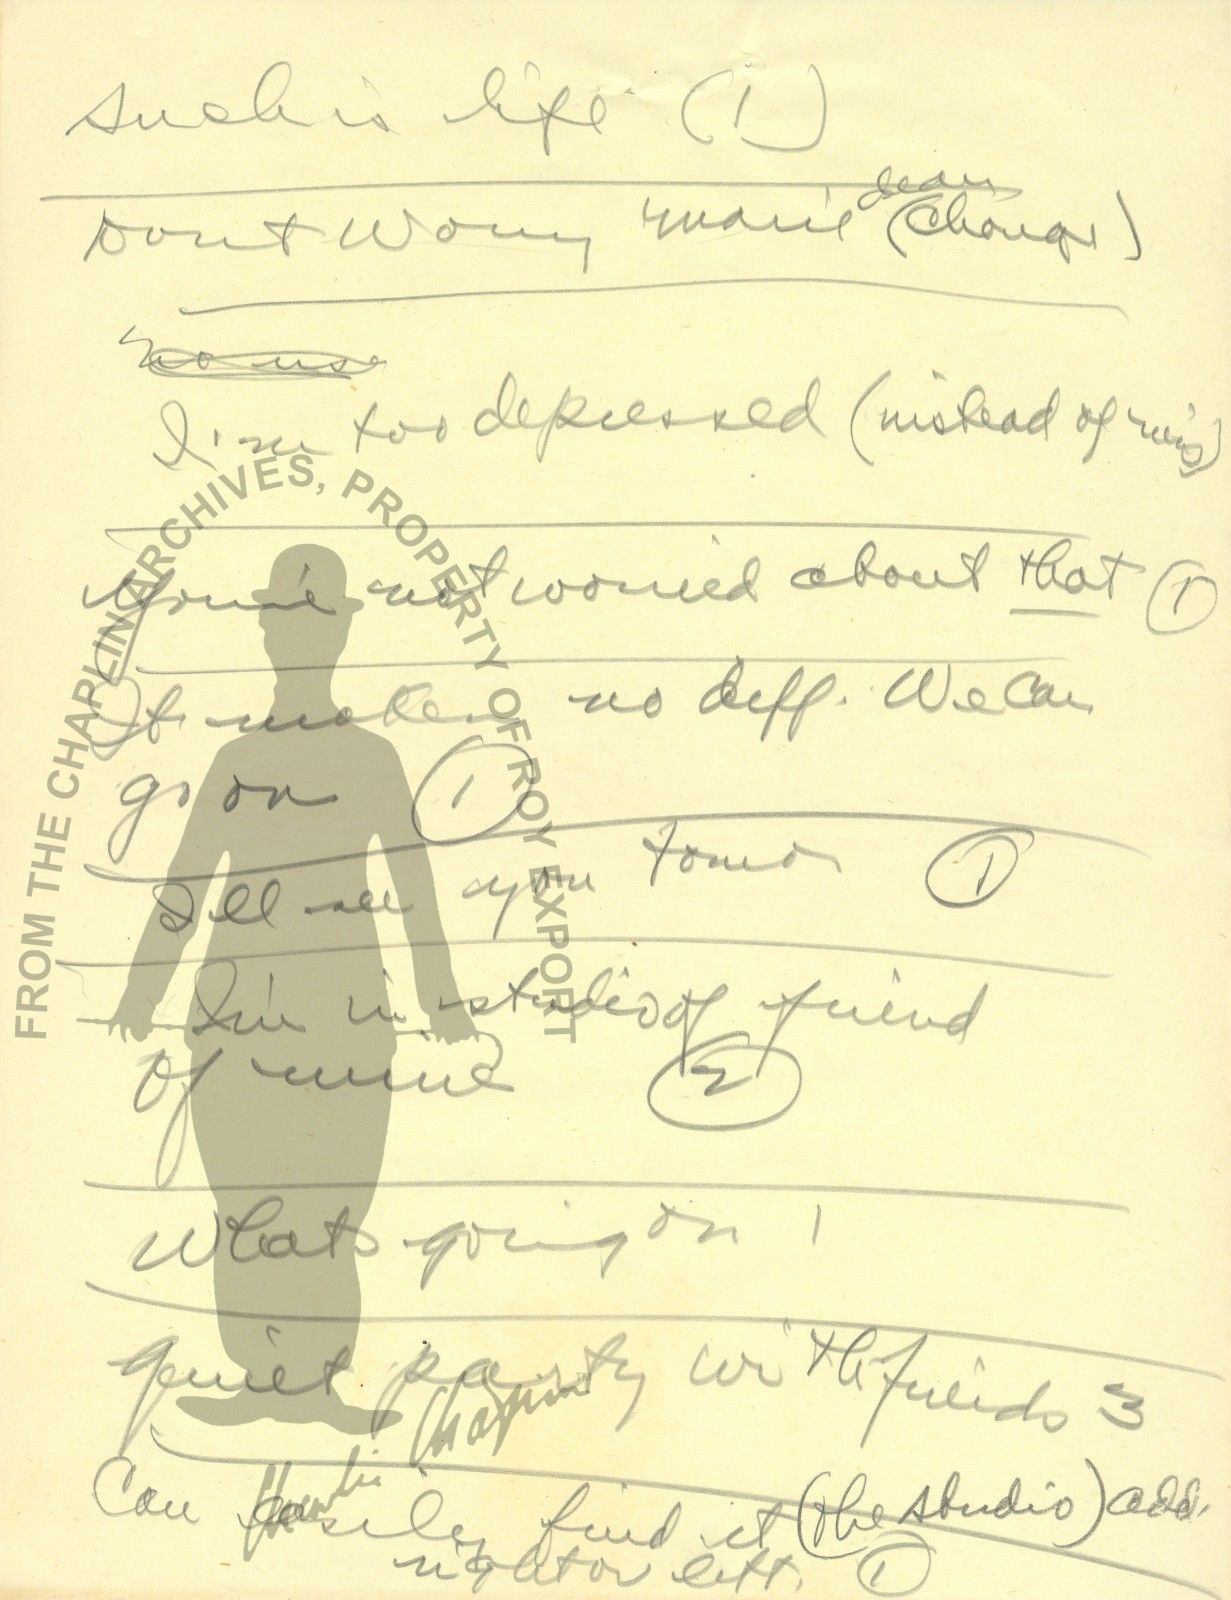 Such is life (1)
Dont Worry Marie dear (Change)
no use
I'm too depressed (instead of mis)
You're not worried about that 1
It makes no diff. We can
go on 1
I'll see you tomor 1
I'm in studio of friend
of mine 2
Whats going on 1
quiet party with friends 3
Can easily find it (the studio) add.
right or left. 1
FROM THE CHAPLIN ARCHIVES, PROPERTY OF ROY EXPORT
Charlie Chaplin™